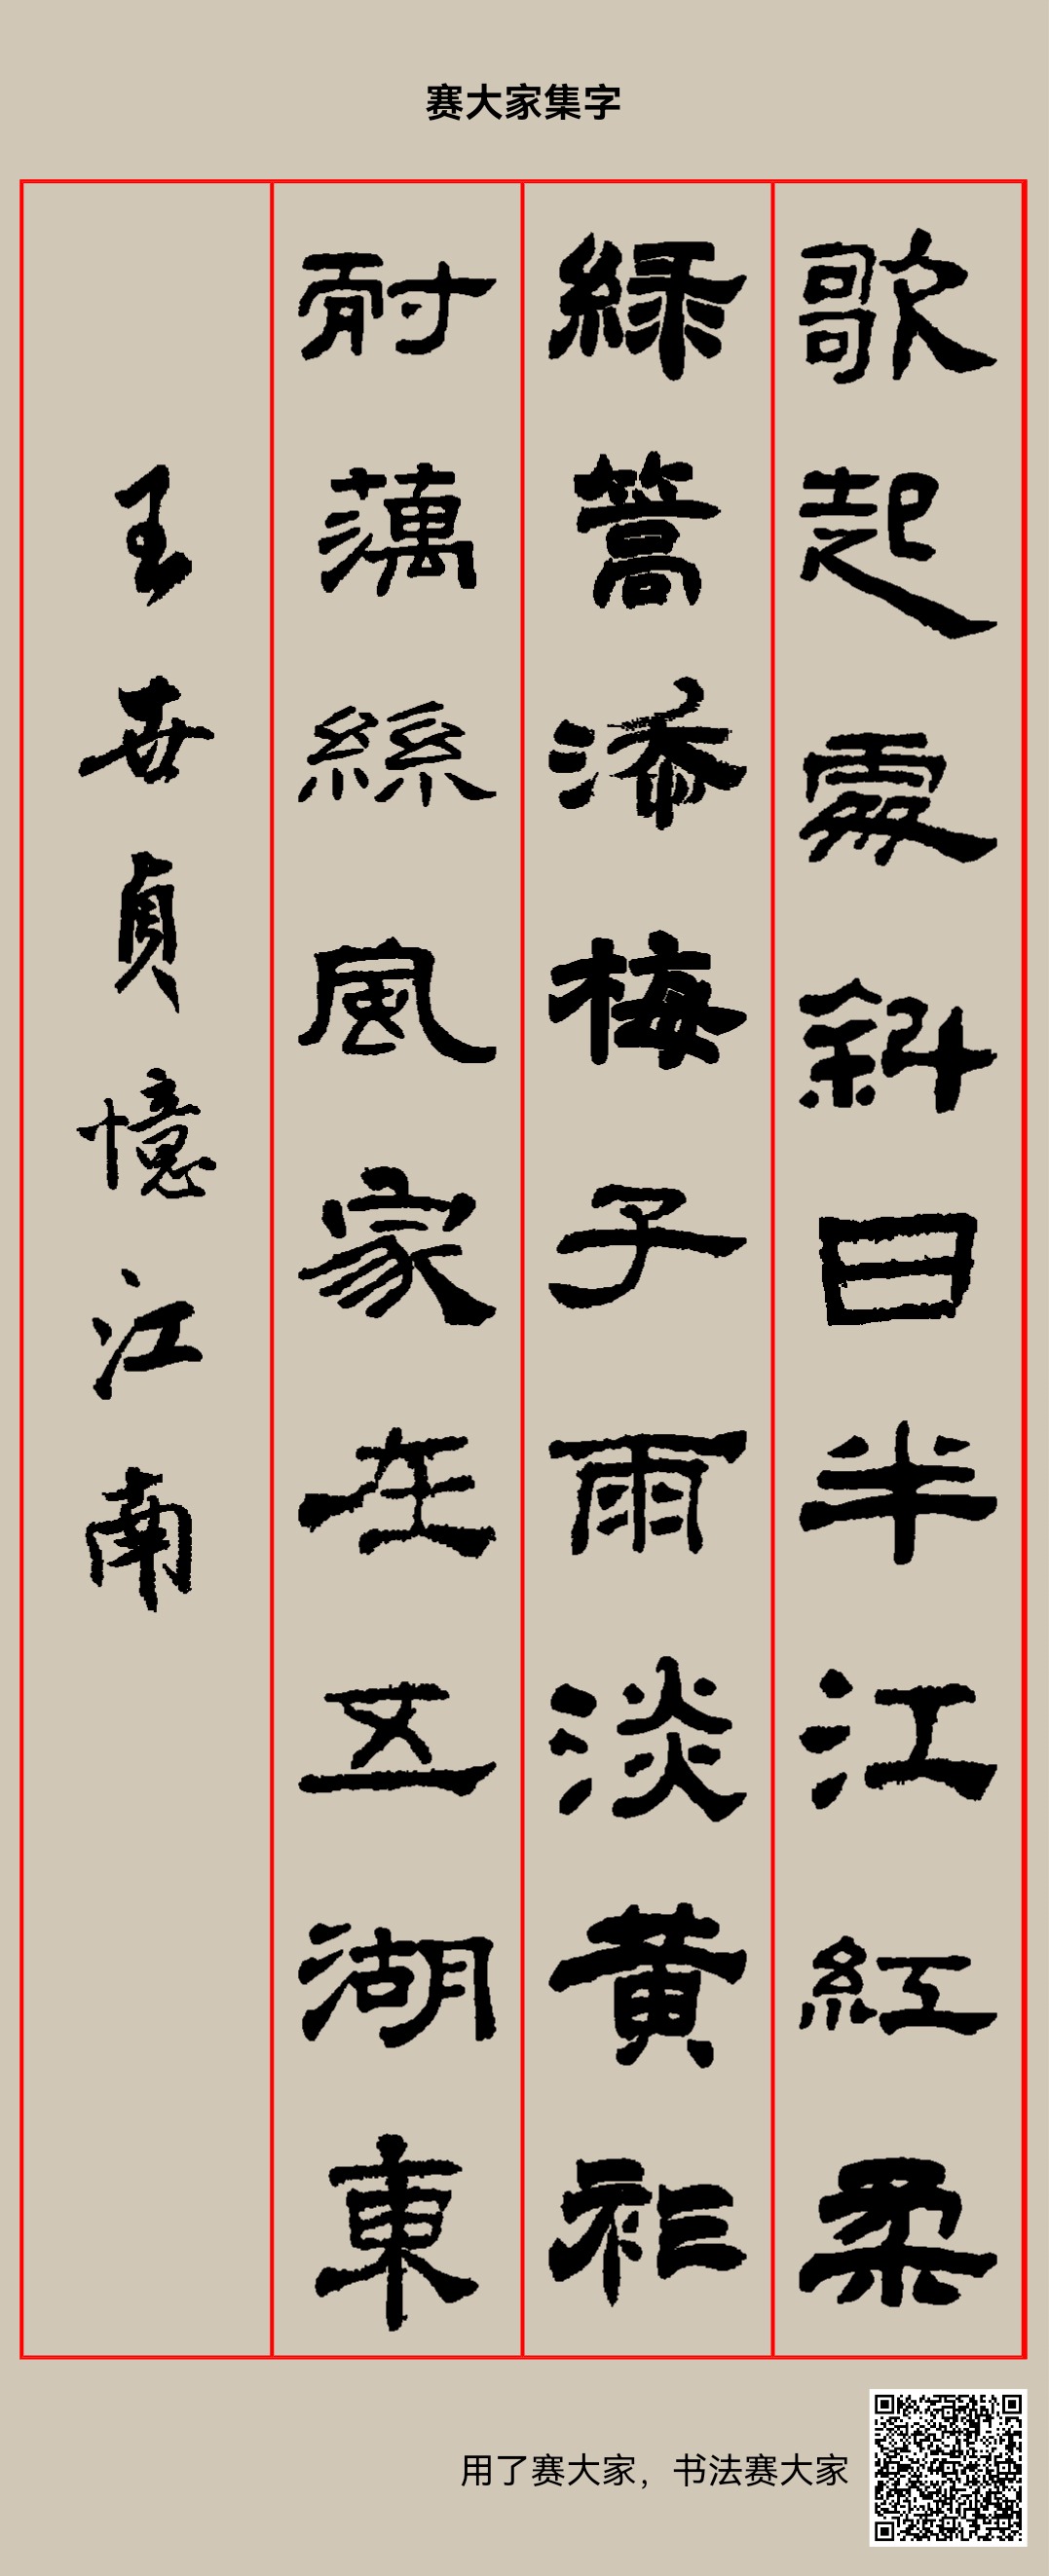 赛大家集字
歌起處斜日半江紅柔
緑篙添梅子雨淡黄衫
耐藕絲風家在五湖東
王世貞憶江南
用了赛大家，书法赛大家